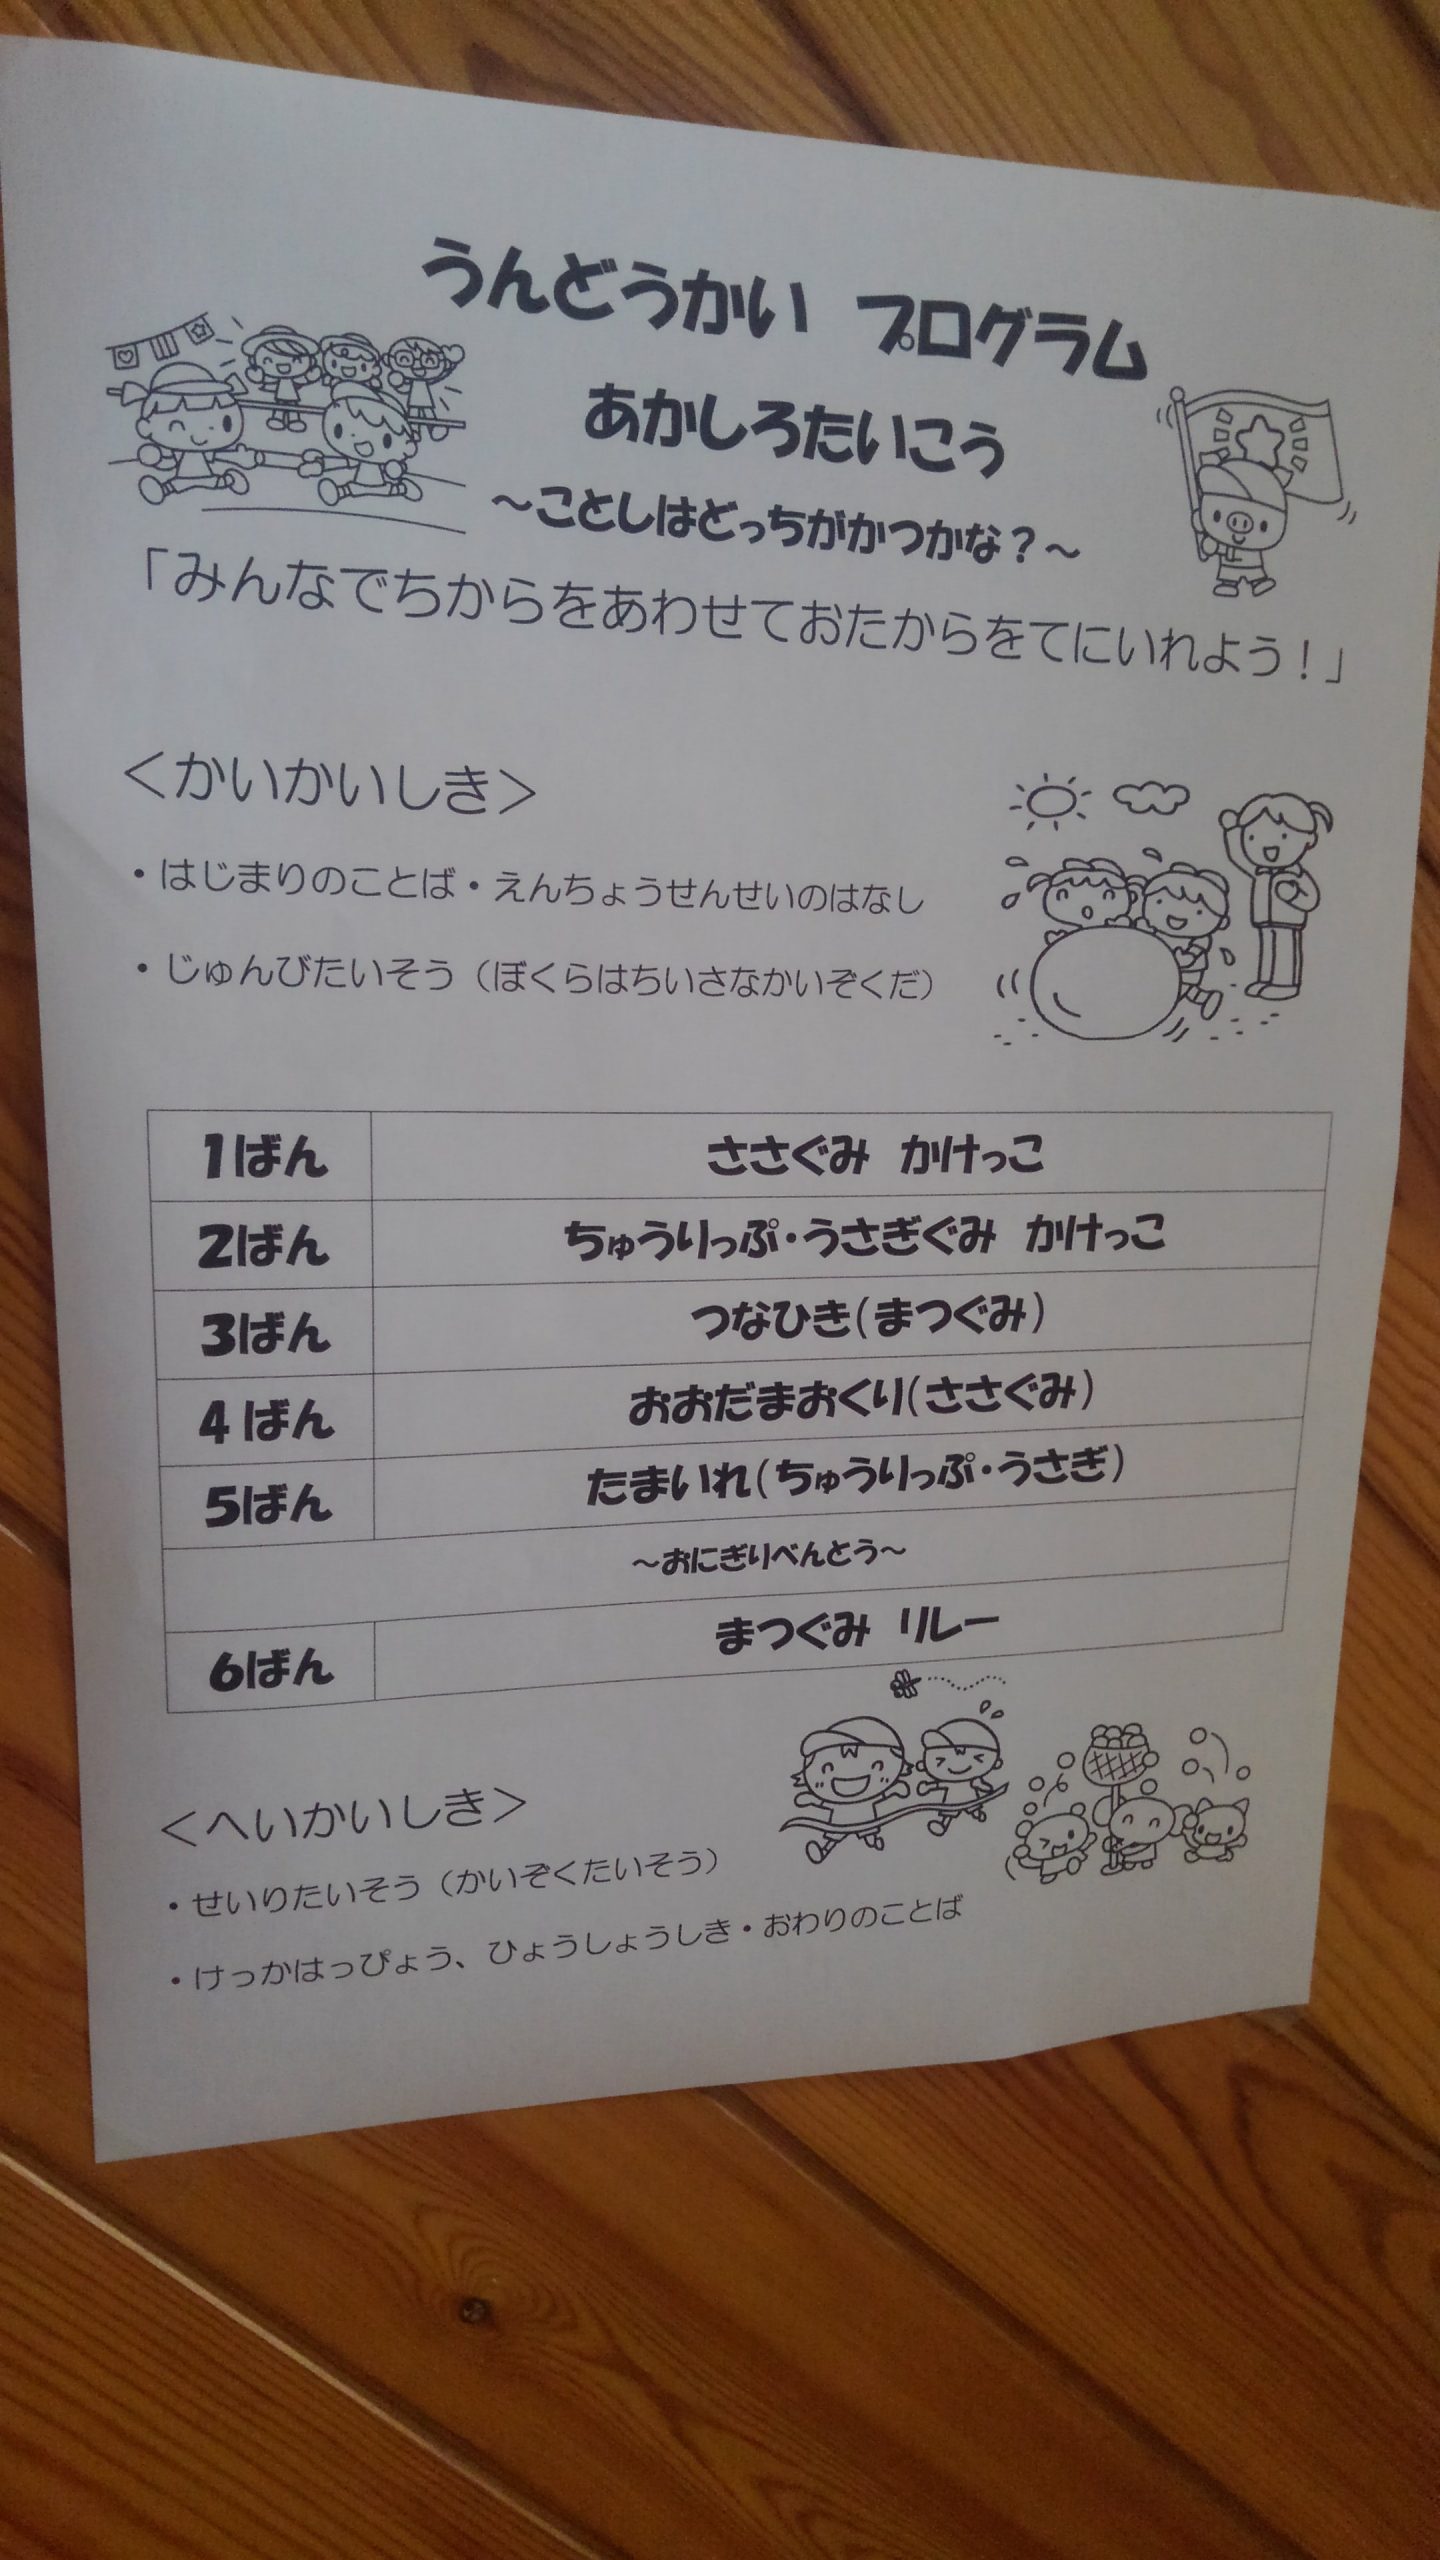 うんどうかい プログラム
あかしろたいこう
～ことしはどっちがかつかな？～
「みんなでちからをあわせておたからをてにいれよう！」
＜かいかいしき＞
・はじまりのことば・えんちょうせんせいのはなし
・じゅんびたいそう（ぼくらはちいさなかいぞくだ）
1ばん ささぐみ かけっこ
2ばん ちゅうりっぷ・うさぎぐみ かけっこ
3ばん つなひき(まつぐみ)
4ばん おおだまおくり(ささぐみ)
5ばん たまいれ(ちゅうりっぷ・うさぎ)
～おにぎりべんとう～
6ばん まつぐみ リレー
＜へいかいしき＞
・せいりたいそう（かいぞくたいそう）
・けっかはっぴょう、ひょうしょうしき・おわりのことば